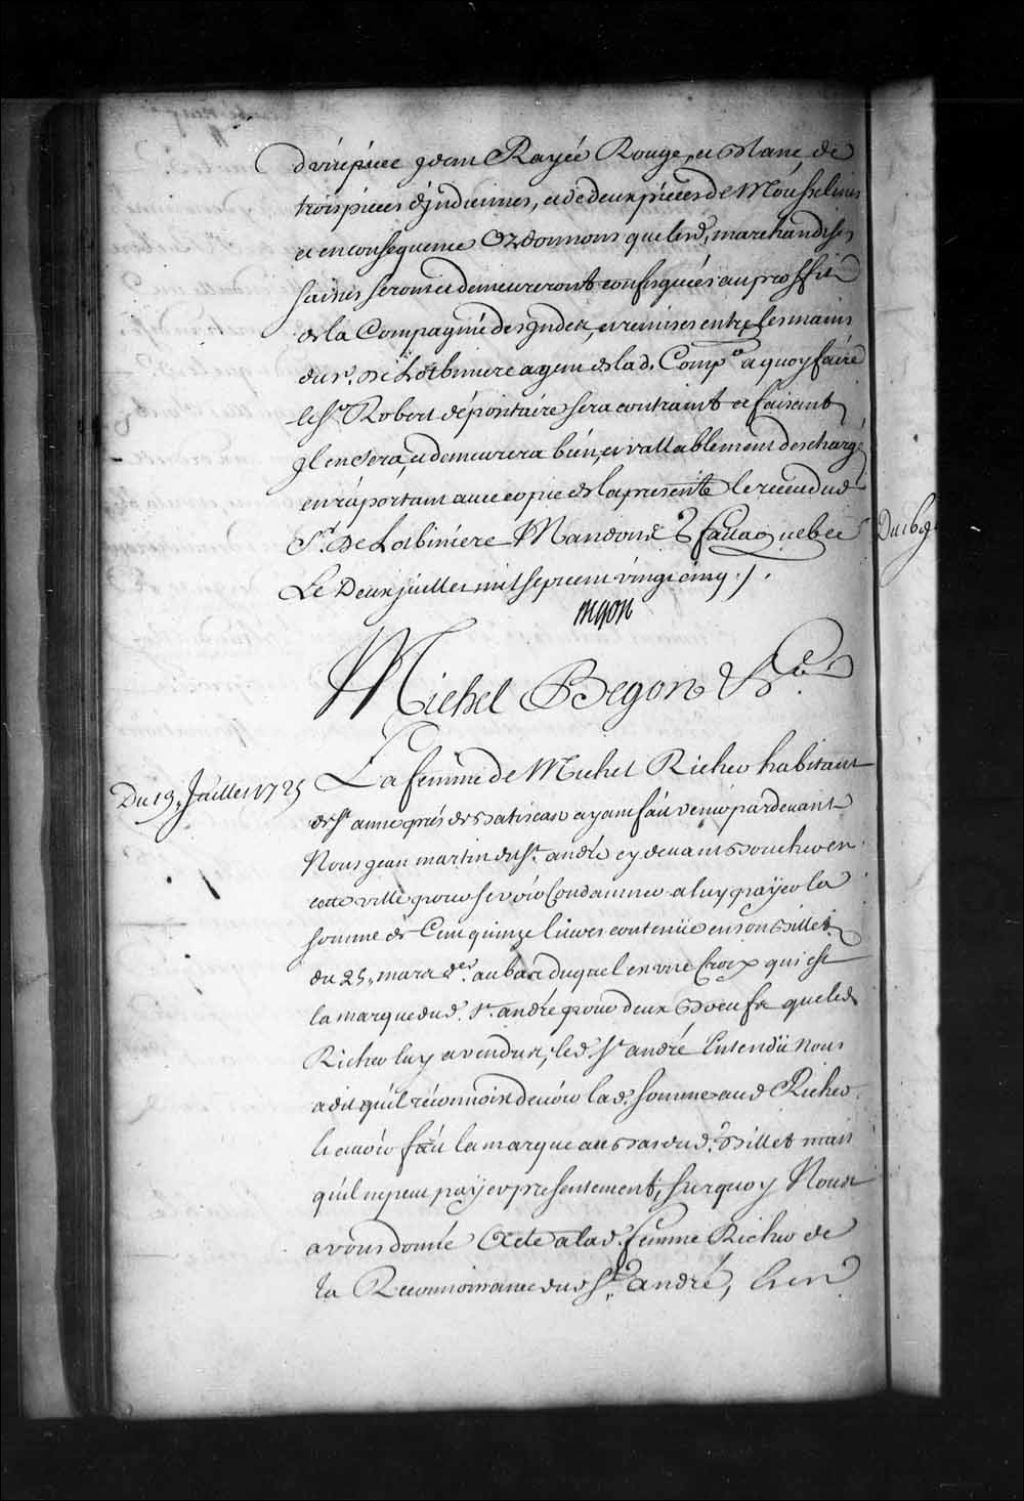 d'une piece idem Rayée Rouge, et Blanc, de
trois pieces d'jndiennes, et de deux pieces de Mousselines
et en consequence Ordonnons que lesd, marchandises
saisies seront et demeureront confisquées au proffit
de la Compagnie des jndes, et remises entre les mains
du sr. De Lotbiniere agent de lad. Compe. a quoy faire
le Sr Robert dépositaire sera contraint et faisant
jl en sera, et demeurera bien, et vallablement deschargé
en raportant avec copie de la presente le recu dud
Sr. De Lotbiniere Mandons &c fait a quebec
Le Deux juillet mil sept cent vingt cinq ./.
Begon
Michel Begon &ca.
Du 13, Juillet 1725
La femme de Michel Richer habitant
de Ste anne prés de Batiscan ayant fait venir pardevant
Nous jean martin dit St. andré cy devant boucher en
cette ville pour se voir Condamner a luy payer la
somme de Cent quinze livres contenüe en son billet
du 25, mars der. au bas duquel en une Croix qui est
la marque dud. St. andré pour deux Boeufs que led
Richer luy a vendus; led St andré Entendü nous
a dit qu'il reconnoist devoir lad. somme aud Richer
et avoir fait la marque au bas dud. billet mais
qu'il ne peut payer presentement, surquoy Nous
avons donné Acte a lad. femme Richer de
la Reconnoissance dud St. andré, et en
Du 16 j